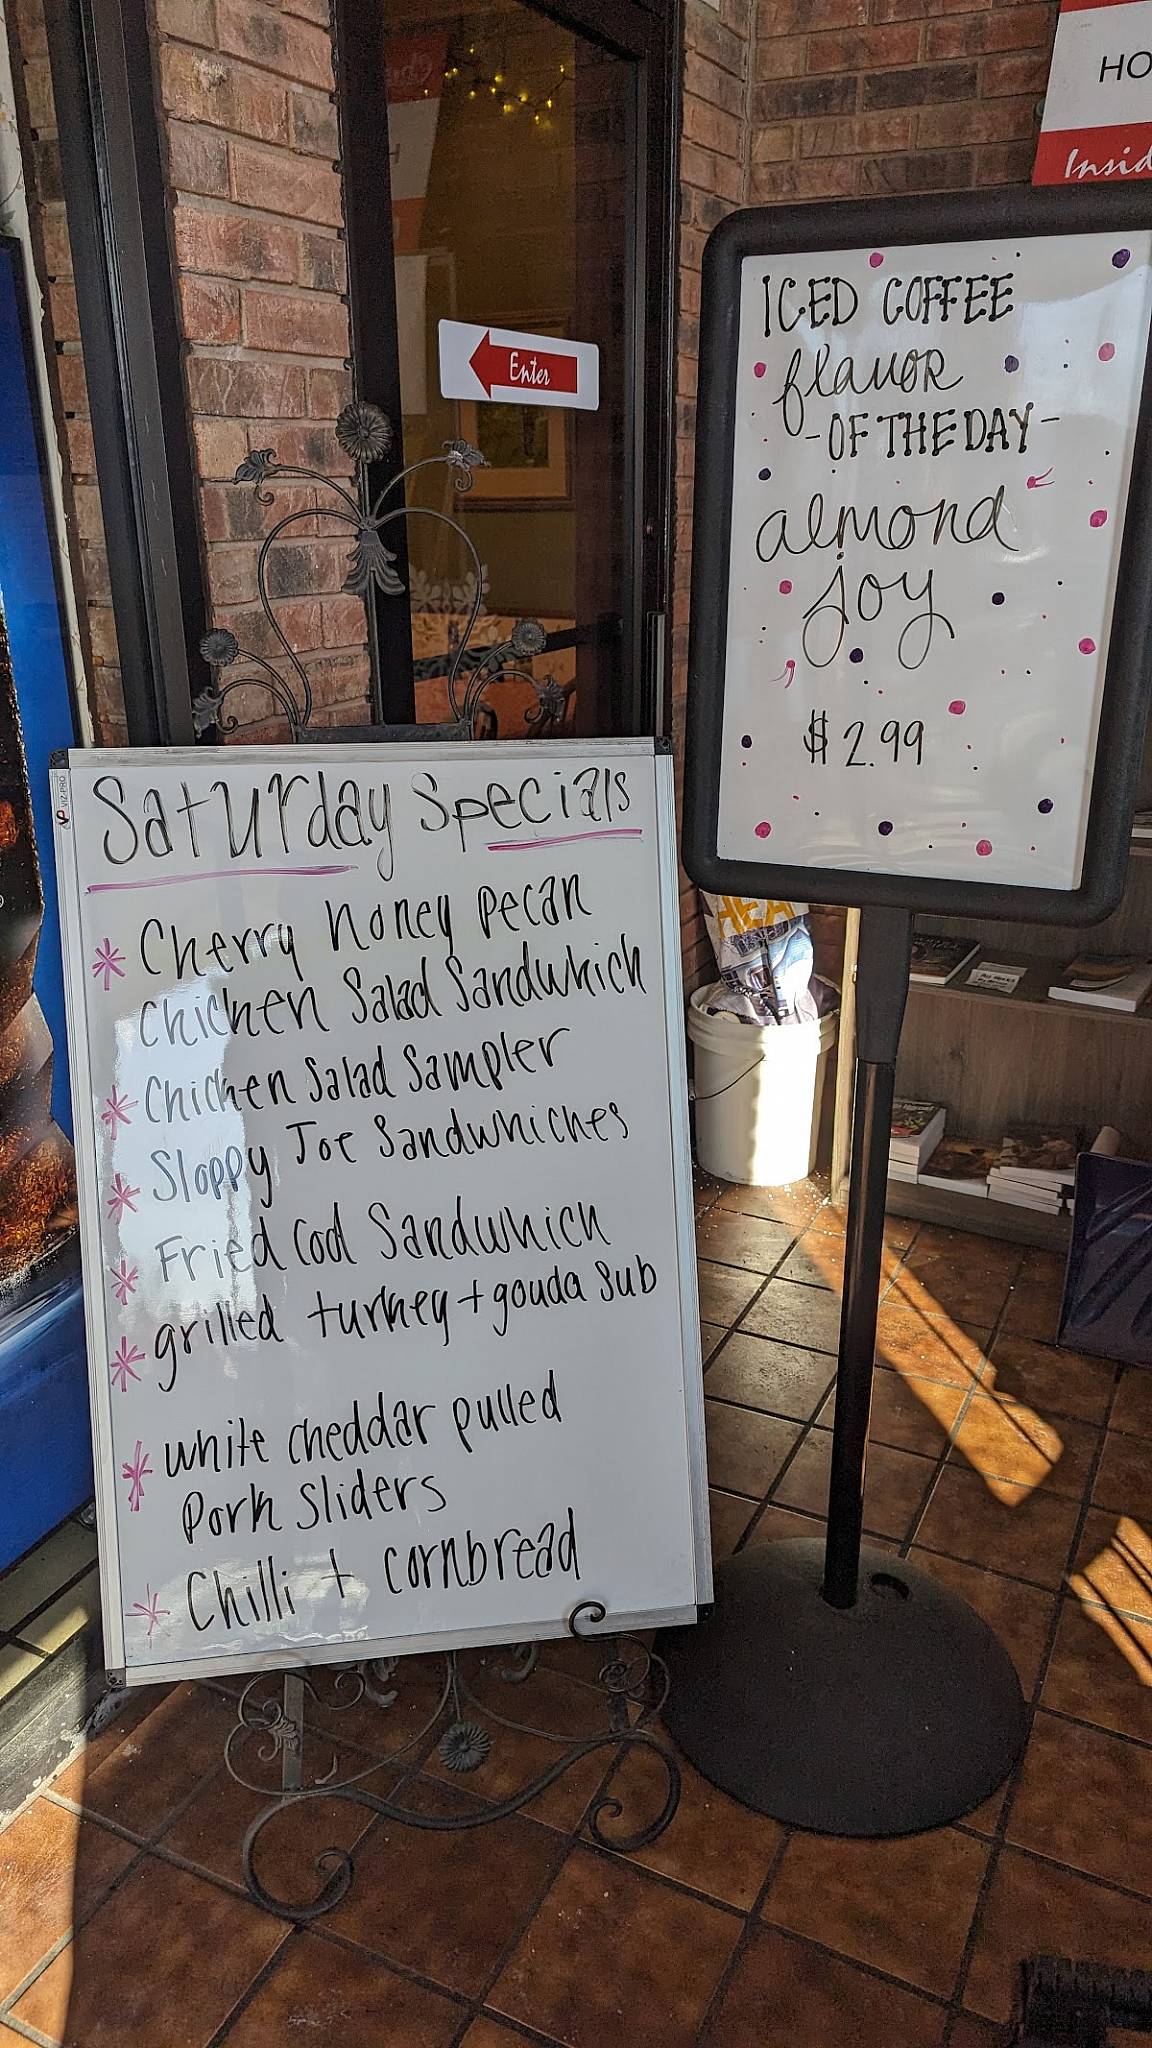 Saturday Specials
* Cherry Honey Pecan
Chicken Salad Sandwhich
* Chicken Salad Sampler
* Sloppy Joe Sandwhiches
* Fried Cod Sandwhich
* grilled turkey + gouda Sub
* white cheddar pulled
Pork Sliders
* Chilli + cornbread
VIZ-PRO
Enter
ICED COFFEE
flavor
-OF THE DAY-
almond
joy
$2.99
HO
Insid